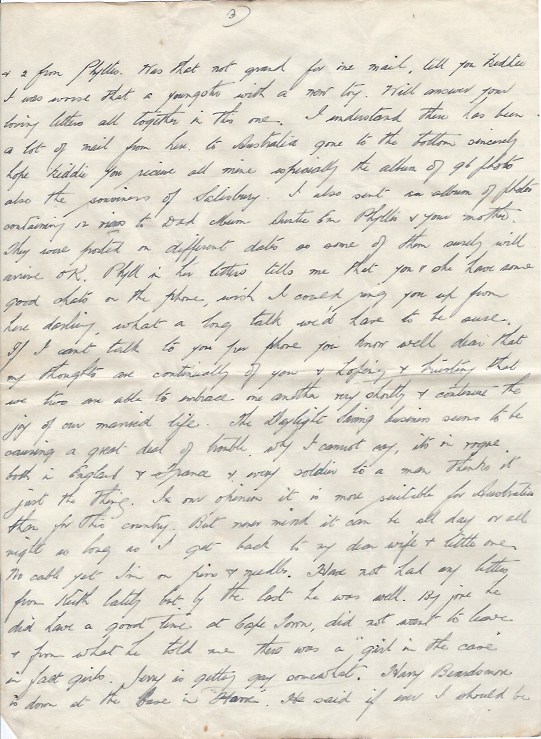 3)
& 2 from Phyllis. Was that not grand for one mail, tell you Kiddie
I was worse that a youngster with a new toy. Will answer your
loving letters all together in this one. I understand there has been
a lot of mail from here to Australia gone to the bottom sincerely
hope Kiddie you receive all mine especially the album of 96 photos
also the souvenirs of Salisbury. I also sent an album of photos
containing 12 views to Dad Mum Auntie Em Phyllis & your mother.
They were posted on different dates so some of them surely will
arrive OK. Phyll in her letters tells me that you & she have some
good chats on the phone, wish I could ring you up from
here darling, what a long talk we'd have to be sure.
If I cant talk to you per phone you know well dear that
my thoughts are continually of you & hoping & trusting that
we two are able to embrace one another very shortly & continue the
joy of our married life. The Daylight Saving business seems to be
causing a great deal of trouble, why I cannot say, its in vogue
both in England & France & every soldier to a man thinks it
just the thing. In our opinion it is more suitable for Australia
than for this country. But never mind it can be all day or all
night so long as I get back to my dear wife & little one.
No cable yet I'm on pins & needles. Have not had any letters
from Keith lately but by the last he was well. By jove he
did have a good time at Cape Town, did not want to leave
& from what he told me there was a "girl in the case"
in fact girls. Jerry is getting gay somewhat. Harry Beardsmore
is down at the Base in "Havre". He said if ever I should be